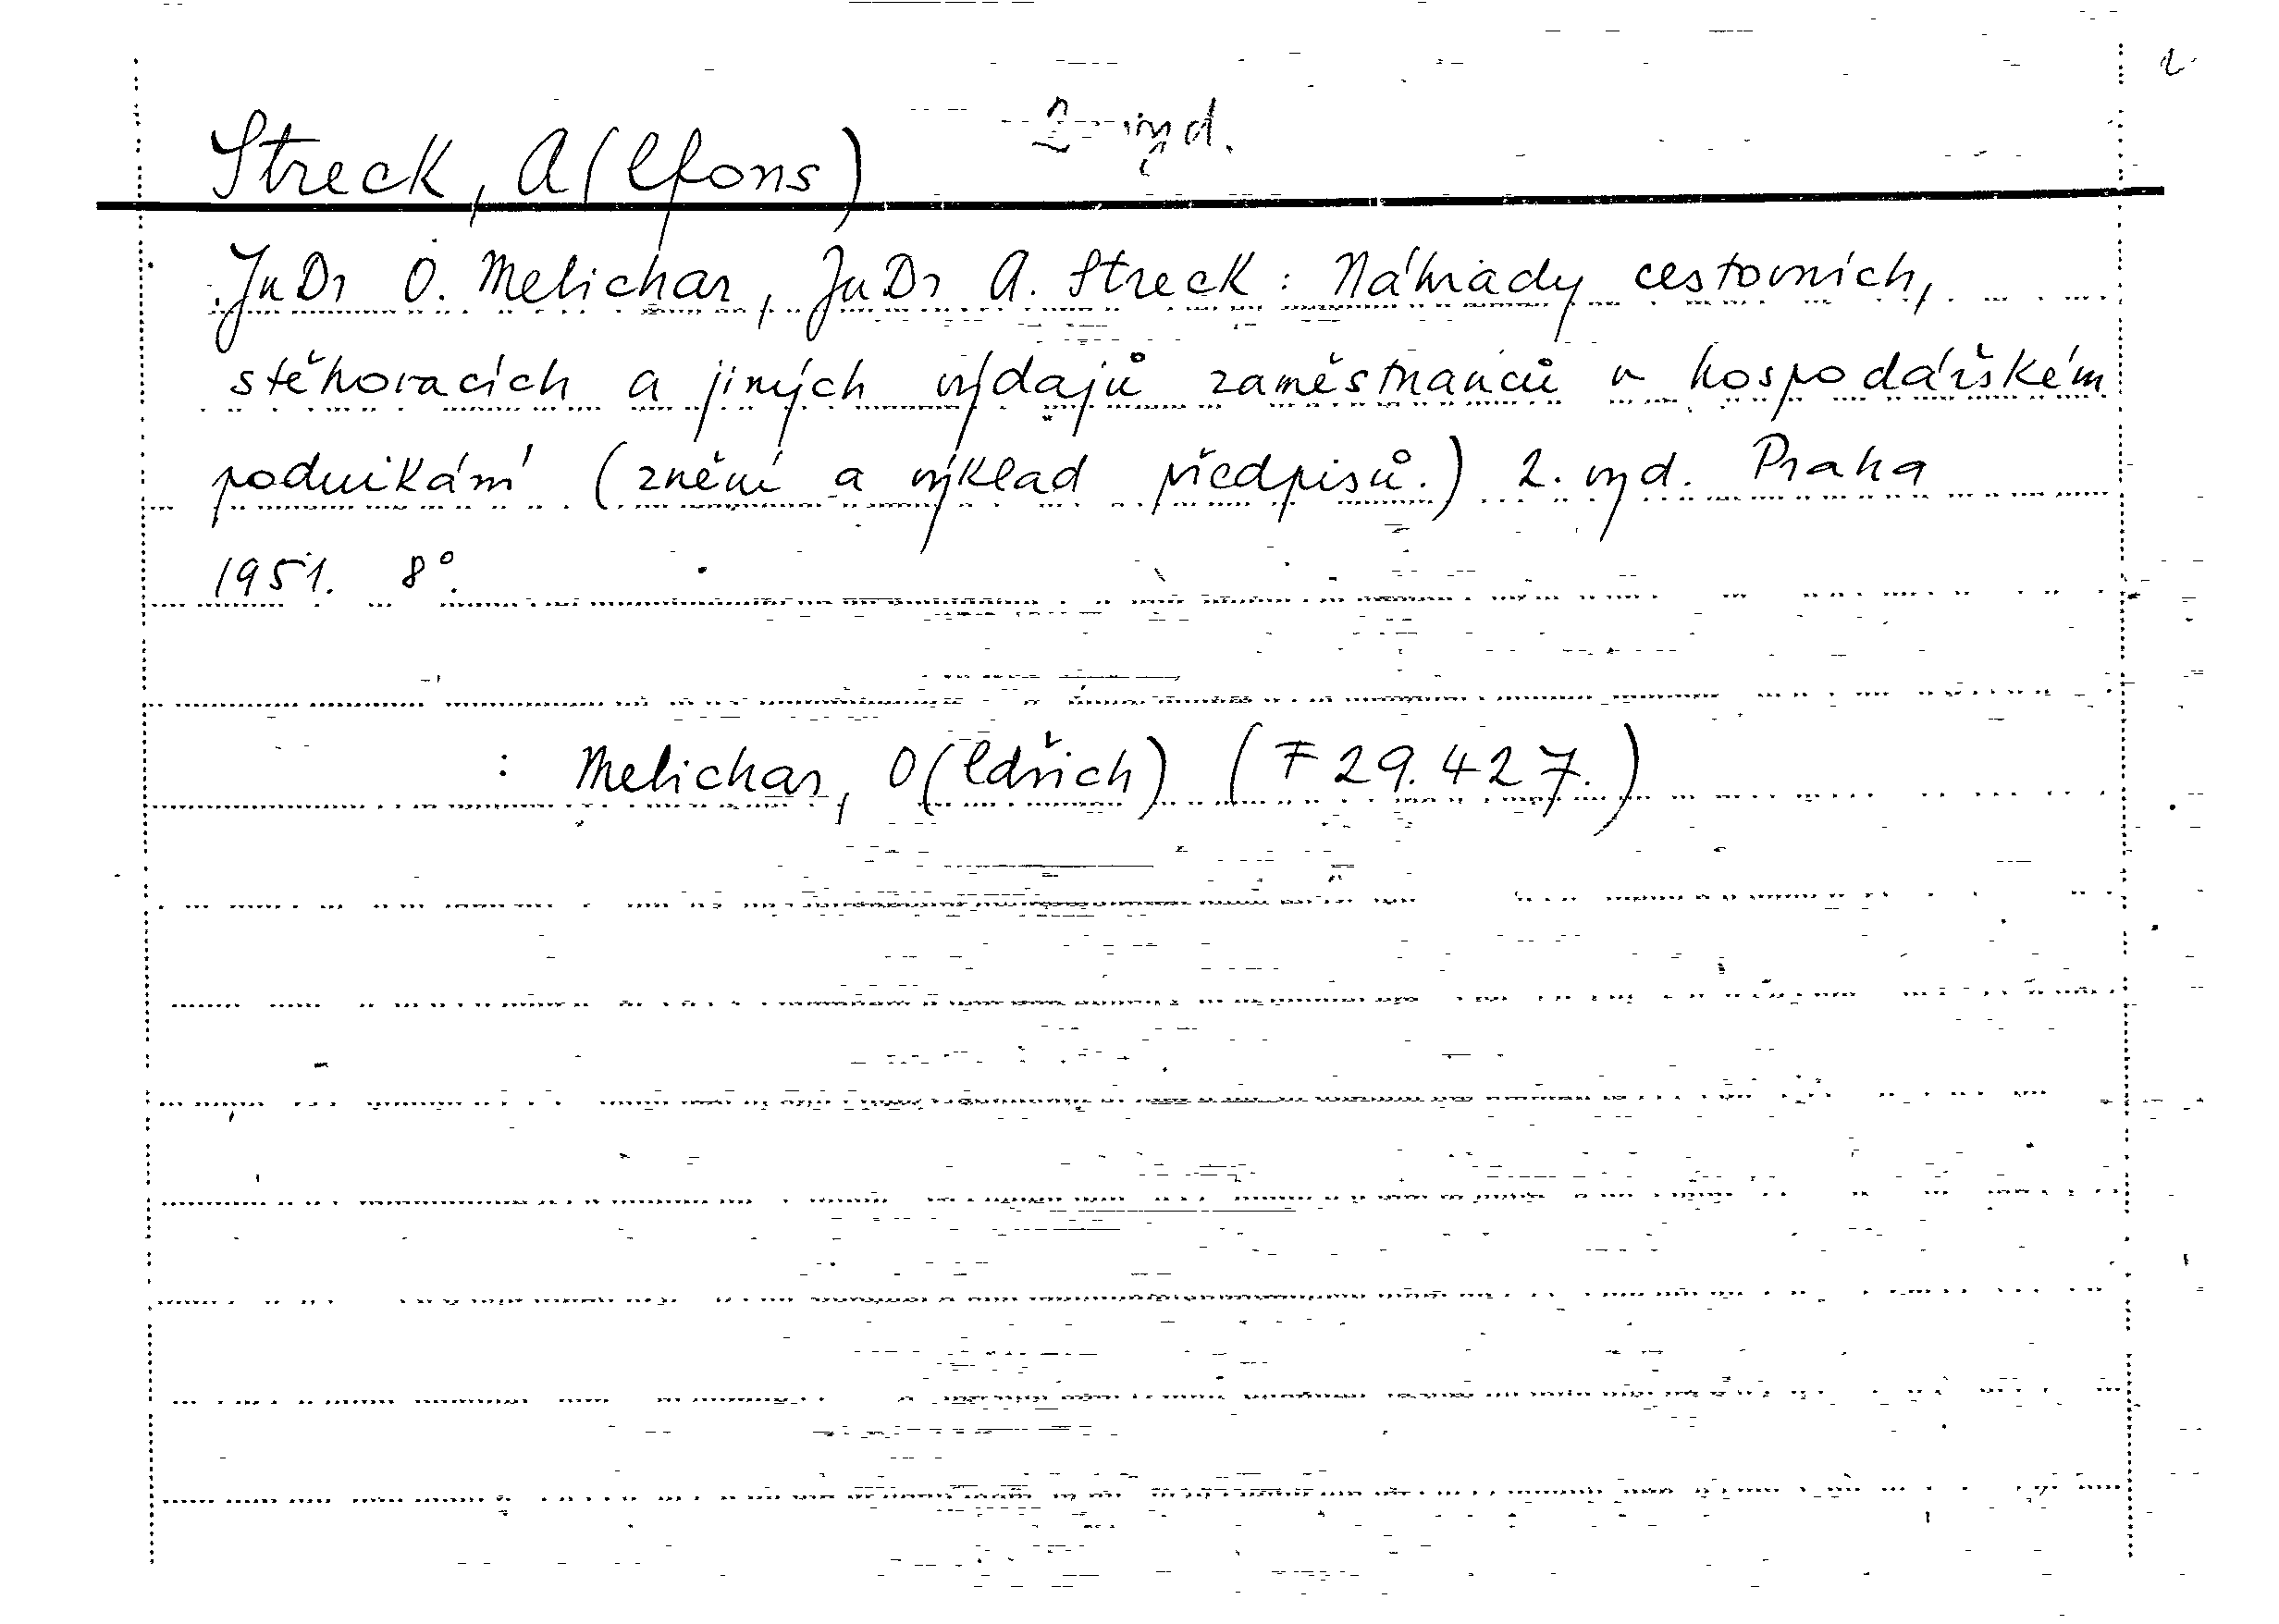 2. vyd.
Streck, A(lfons)
JuDr O. Melichar, JuDr A. Streck: Náhrady cestovních,
stěhovacích a jiných výdajů zaměstnanců v hospodářském
podnikání (znění a výklad předpisů.) 2. vyd. Praha
1951. 8°.
: Melichar, O(ldřich) (F 29.427.)